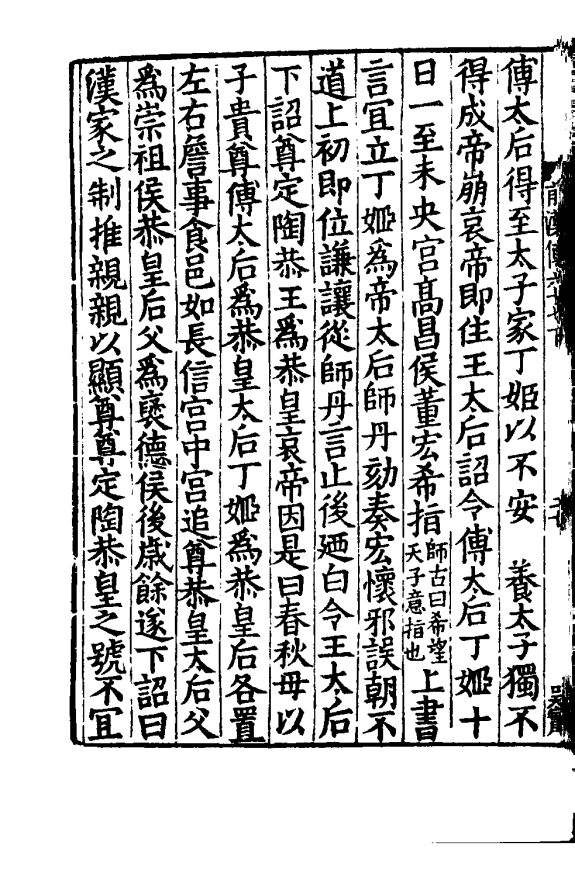 傅太后得至太子家丁姬以不安　養太子獨不
得成帝崩哀帝即住王太后詔令傅太后丁姬十
日一至未央宮髙昌侯董宏希指師古曰希望天子意指也上書
言宜立丁姬爲帝太后師丹劾奏宏懷邪誤朝不
道上初即位謙讓從師丹言止後廼白令王太后
下詔尊定陶恭王爲恭皇哀帝因是曰春秋母以
子貴尊傅太后爲恭皇太后丁姬爲恭皇后各置
左右詹事食邑如長信宮中宮追尊恭皇太后父
爲崇祖侯恭皇后父爲襃德侯後歳餘遂下詔曰
漢家之制推親親以顯尊尊定陶恭皇之號不宜